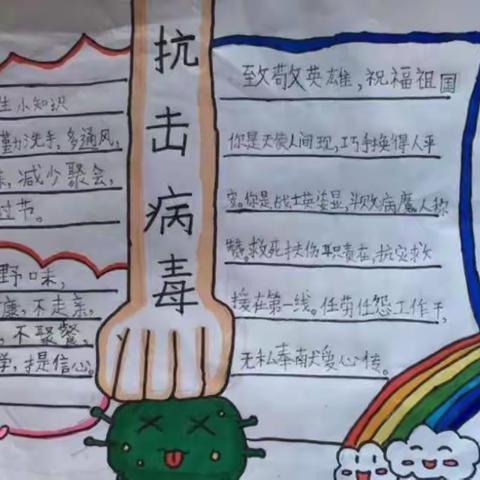 抗击病毒
生小知识
勤洗手，多通风，
减少聚会，
过节。
野味，
廉，不走亲，
不聚餐，
学，才是信心。
致敬英雄，祝福祖国
你是天使人间现，巧手换得人平
安。你是战士英姿显，半败病魔人称
赞。救死扶伤职责在，抗灾救
援在第一线。任劳任怨工作干，
无私奉献爱心传。